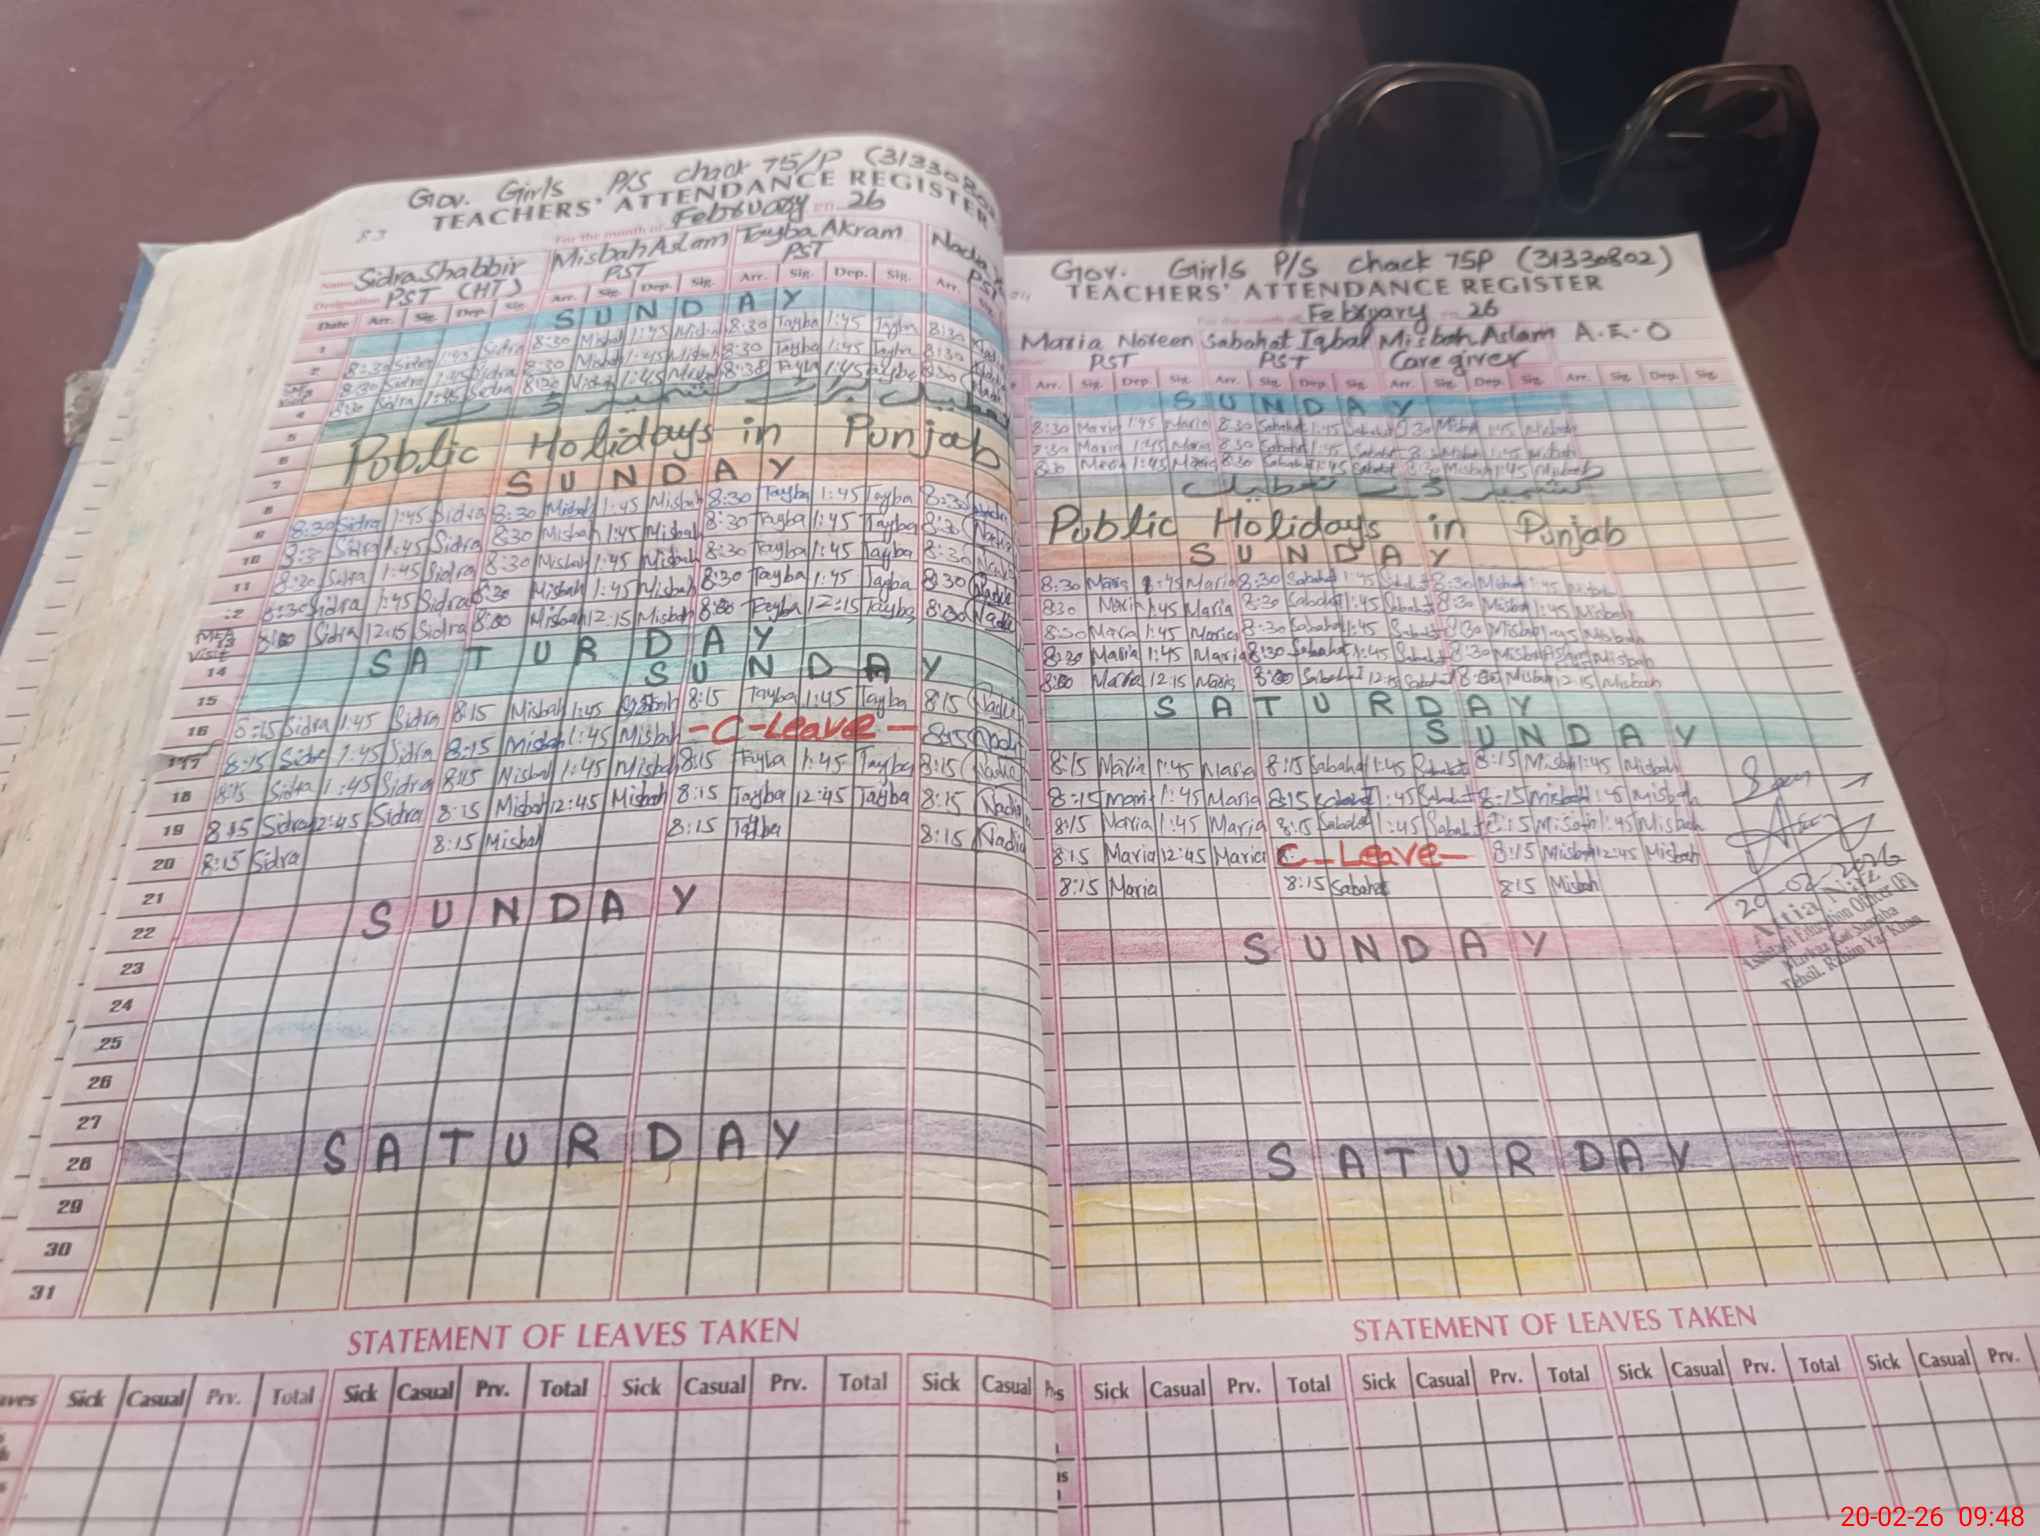 Gov. Girls P/S chack 75/P (3133080
TEACHERS' ATTENDANCE REGISTER
83 For the month of February 26
Name Sidra Shabbir Misbah Aslam Tayba Akram Nadia
Designation PST (HT) PST PST PST
Date Arr. Sig. Dep. Sig. Arr. Sig. Dep. Sig. Arr. Sig. Dep. Sig. Arr.
1 SUNDAY
2 8:30 Sidra 1:45 Sidra 8:30 Misbah 1:45 Misbah 8:30 Tayba 1:45 Tayba 8:30
8:30 Sidra 1:45 Sidra 8:30 Misbah 1:45 Misbah 8:30 Tayba 1:45 Tayba 8:30
4 8:30 Sidra 1:45 Sidra 8:30 Misbah 1:45 Misbah 8:30 Tayba 1:45 Tayba 8:30
5
6 Public Holidays in Punjab
7
8 SUNDAY
9 8:30 Sidra 1:45 Sidra 8:30 Misbah 1:45 Misbah 8:30 Tayba 1:45 Tayba 8:30
10 8:30 Sidra 1:45 Sidra 8:30 Misbah 1:45 Misbah 8:30 Tayba 1:45 Tayba 8:30 Nadia
11 8:30 Sidra 1:45 Sidra 8:30 Misbah 1:45 Misbah 8:30 Tayba 1:45 Tayba 8:30
8:30 Sidra 1:45 Sidra 8:30 Misbah 1:45 Misbah 8:30 Tayba 1:45 Tayba 8:30 Nadia
13 8:00 Sidra 12:15 Sidra 8:00 Misbah 12:15 Misbah 8:00 Tayba 12:15 Tayba 8:00 Nadia
Visit
14 SATURDAY
15 SUNDAY
16 8:15 Sidra 1:45 Sidra 8:15 Misbah 1:45 Misbah 8:15 Tayba 1:45 Tayba 8:15 Nadia
17 8:15 Sidra 1:45 Sidra 8:15 Misbah 1:45 Misbah -C-Leave- 8:15 Nadia
18 8:15 Sidra 1:45 Sidra 8:15 Misbah 1:45 Misbah 8:15 Tayba 1:45 Tayba 8:15 Nadia
19 8:15 Sidra 12:45 Sidra 8:15 Misbah 12:45 Misbah 8:15 Tayba 12:45 Tayba 8:15 Nadia
20 8:15 Sidra 8:15 Misbah 8:15 Tayba 8:15 Nadia
21
22 SUNDAY
23
24
25
26
27
28 SATURDAY
29
30
31
STATEMENT OF LEAVES TAKEN
Sick Casual Prv. Total Sick Casual Prv. Total Sick Casual Prv. Total Sick Casual
Gov. Girls P/S chack 75P (31330802)
TEACHERS' ATTENDANCE REGISTER
For the month of February 26
Maria Noreen Sabahat Iqbal Misbah Aslam A.E.O
PST PST Care giver
Arr. Sig. Dep. Sig. Arr. Sig. Dep. Sig. Arr. Sig. Dep. Sig. Arr. Sig. Dep. Sig.
SUNDAY
8:30 Maria 1:45 Maria 8:30 Sabahat 1:45 Sabahat 8:30 Misbah 1:45 Misbah
8:30 Maria 1:45 Maria 8:30 Sabahat 1:45 Sabahat 8:30 Misbah 1:45 Misbah
8:30 Maria 1:45 Maria 8:30 Sabahat 1:45 Sabahat 8:30 Misbah 1:45 Misbah
Public Holidays in Punjab
SUNDAY
8:30 Maria 1:45 Maria 8:30 Sabahat 1:45 Sabahat 8:30 Misbah 1:45 Misbah
8:30 Maria 1:45 Maria 8:30 Sabahat 1:45 Sabahat 8:30 Misbah 1:45 Misbah
8:30 Maria 1:45 Maria 8:30 Sabahat 1:45 Sabahat 8:30 Misbah 1:45 Misbah
8:30 Maria 1:45 Maria 8:30 Sabahat 1:45 Sabahat 8:30 Misbah 1:45 Misbah
8:00 Maria 12:15 Maria 8:00 Sabahat 12:15 Sabahat 8:00 Misbah 12:15 Misbah
SATURDAY
SUNDAY
8:15 Maria 1:45 Maria 8:15 Sabahat 1:45 Sabahat 8:15 Misbah 1:45 Misbah
8:15 Maria 1:45 Maria 8:15 Sabahat 1:45 Sabahat 8:15 Misbah 1:45 Misbah
8:15 Maria 1:45 Maria 8:15 Sabahat 1:45 Sabahat 8:15 Misbah 1:45 Misbah
8:15 Maria 12:45 Maria C-Leave- 8:15 Misbah 12:45 Misbah
8:15 Maria 8:15 Sabahat 8:15 Misbah
20-02-2026
Assistant Education Officer (F)
Tehsil Rahim Yar Khan
SUNDAY
SATURDAY
STATEMENT OF LEAVES TAKEN
Sick Casual Prv. Total Sick Casual Prv. Total Sick Casual Prv. Total Sick Casual Prv.
20-02-26 09:48